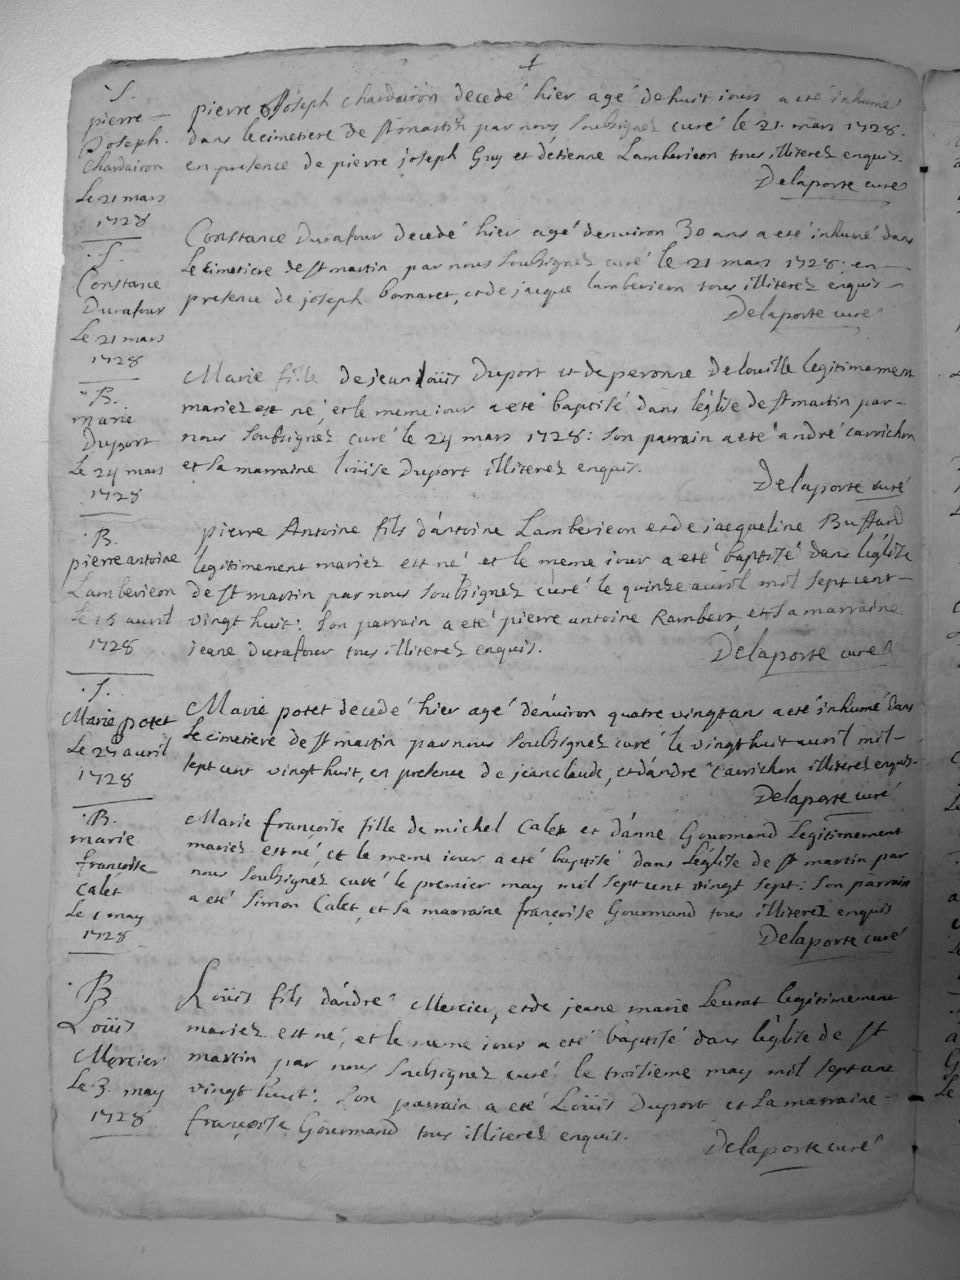 S.
pierre
Joseph
Chardairon
Le 21 mars
1728
pierre Joseph Chardairon decedé hier agé de huit iours a eté inhumé
dans le cimetiere de st martin par nous soubsignez curé le 21 mars 1728.
en presence de pierre joseph Guy et d'etienne Lamberieon tous illiterez enquis.
Delaporte curé
S.
Constance
Durafour
Le 21 mars
1728
Constance Durafour decedé hier agé denviron 30 ans a eté inhumé dans
Le cimetiere de st martin par nous soubsignez curé le 21 mars 1728: en
presence de joseph bonnaret, et de jacque lamberieon tous illiterez enquis
Delaporte curé
B.
marie
Duport
Le 24 mars
1728
Marie fille de jean loüis Duport et de peronne Delouille legitimement
mariez est né, et le meme iour a eté baptisé dans léglise de st martin par
nous soubsignez curé le 24 mars 1728: son parrain a eté andré carrichon
et sa marraine loüise Duport illiterez enquis.
Delaporte curé
B.
pierre antoine
Lamberieon
le 15 auril
1728
pierre Antoine fils d'antoine Lamberieon et de jacqueline Buffard
legitimement mariez est né et le meme iour a eté baptisé dans léglise
de st martin par nous soubsignez curé le quinze auril mil sept cent
vingt huit: son parrain a eté pierre antoine Rambert, et sa marraine
jeane Durafour tous illiterez enquis.
Delaporte curé
S.
Marie potet
Le 28 auril
1728
Marie potet décedé hier agé dénuiron quatre vingt ans a eté inhumé dans
Le cimetiere de st martin par nous soubsignez curé le vingt huit auril mil
sept cent vingt huit, en presence de jean claude, et d'andre carrichon illiterez enquis.
Delaporte curé
B.
marie
françoise
Calet
Le 1 may
1728
Marie françoise fille de michel Calet et d'anne Gourmand Legitimement
mariez est né, et le meme iour a eté baptisé dans Léglise de st martin par
nous soubsignez curé le premier may mil sept cent vingt sept: son parrain
a eté Simon Calet, et sa marraine françoise Gourmand tous illiterez enquis
Delaporte curé
B
Loüis
Mercier
Le 3 may
1728
Loüis fils d'andre Mercier, et de jeane marie Leurat legitimement
mariez est né, et le meme iour a eté baptisé dans léglise de st
martin par nous soubsignez curé le troisieme may mil sept ant
vingt huit: son parrain a eté Loüis Duport et La marraine
françoise Gourmand tous illiterez enquis.
Delaporte curé